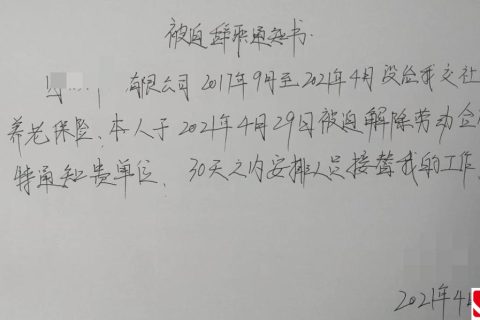 被迫辞职通知书
有限公司2017年9月至2021年4月没给我交社
养老保险、本人于2021年4月29日被迫解除劳动合
特通知贵单位、30天之内安排人员接替我的工作
2021年4